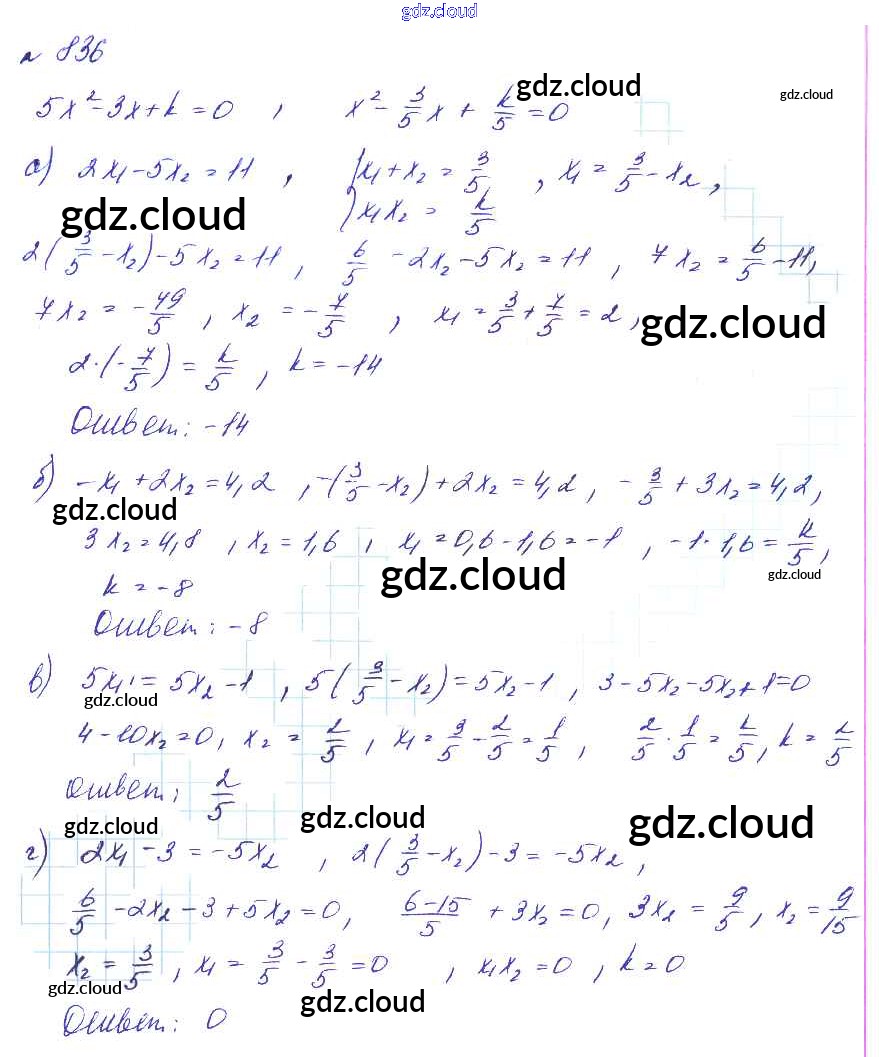 gdz.cloud
№ 836
5x² - 3x + k = 0 , x² - 3/5 x + k/5 = 0
gdz.cloud gdz.cloud
а) 2x₁ - 5x₂ = 11 , { x₁ + x₂ = 3/5 , x₁x₂ = k/5 , x₁ = 3/5 - x₂ ,
gdz.cloud
2(3/5 - x₂) - 5x₂ = 11 , 6/5 - 2x₂ - 5x₂ = 11 , 7x₂ = 6/5 - 11,
7x₂ = -49/5 , x₂ = -7/5 , x₁ = 3/5 + 7/5 = 2 ,
gdz.cloud
2·(-7/5) = k/5 , k = -14
Ответ: -14
б) -x₁ + 2x₂ = 4,2 , -(3/5 - x₂) + 2x₂ = 4,2 , -3/5 + 3x₂ = 4,2 ,
gdz.cloud
3x₂ = 4,8 , x₂ = 1,6 , x₁ = 0,6 - 1,6 = -1 , -1·1,6 = k/5 ,
gdz.cloud gdz.cloud
k = -8
Ответ: -8
в) 5x₁ = 5x₂ - 1 , 5(3/5 - x₂) = 5x₂ - 1 , 3 - 5x₂ - 5x₂ + 1 = 0
gdz.cloud
4 - 10x₂ = 0 , x₂ = 2/5 , x₁ = 3/5 - 2/5 = 1/5 , 2/5 · 1/5 = k/5 , k = 2/5
Ответ: 2/5
gdz.cloud gdz.cloud gdz.cloud
г) 2x₁ - 3 = -5x₂ , 2(3/5 - x₂) - 3 = -5x₂ ,
6/5 - 2x₂ - 3 + 5x₂ = 0 , (6-15)/5 + 3x₂ = 0 , 3x₂ = 9/5 , x₂ = 9/15
x₂ = 3/5 , x₁ = 3/5 - 3/5 = 0 , x₁x₂ = 0 , k = 0
gdz.cloud gdz.cloud gdz.cloud
Ответ: 0